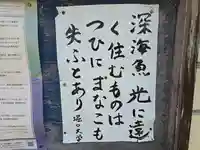 深海魚 光に遠
く住むものは
つひにまなこも
失ふとあり
堀口大学